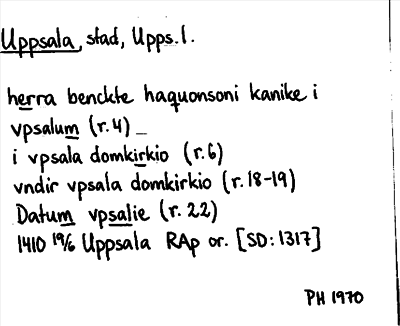 Uppsala, stad, Upps.l.
herra benckte haquonsoni kanike i
vpsalum (r.4) _
i vpsala domkirkio (r.6)
vndir vpsala domkirkio (r.18-19)
Datum vpsalie (r.22)
1410 19/6 Uppsala RAp or. [SD:1317]
PH 1970